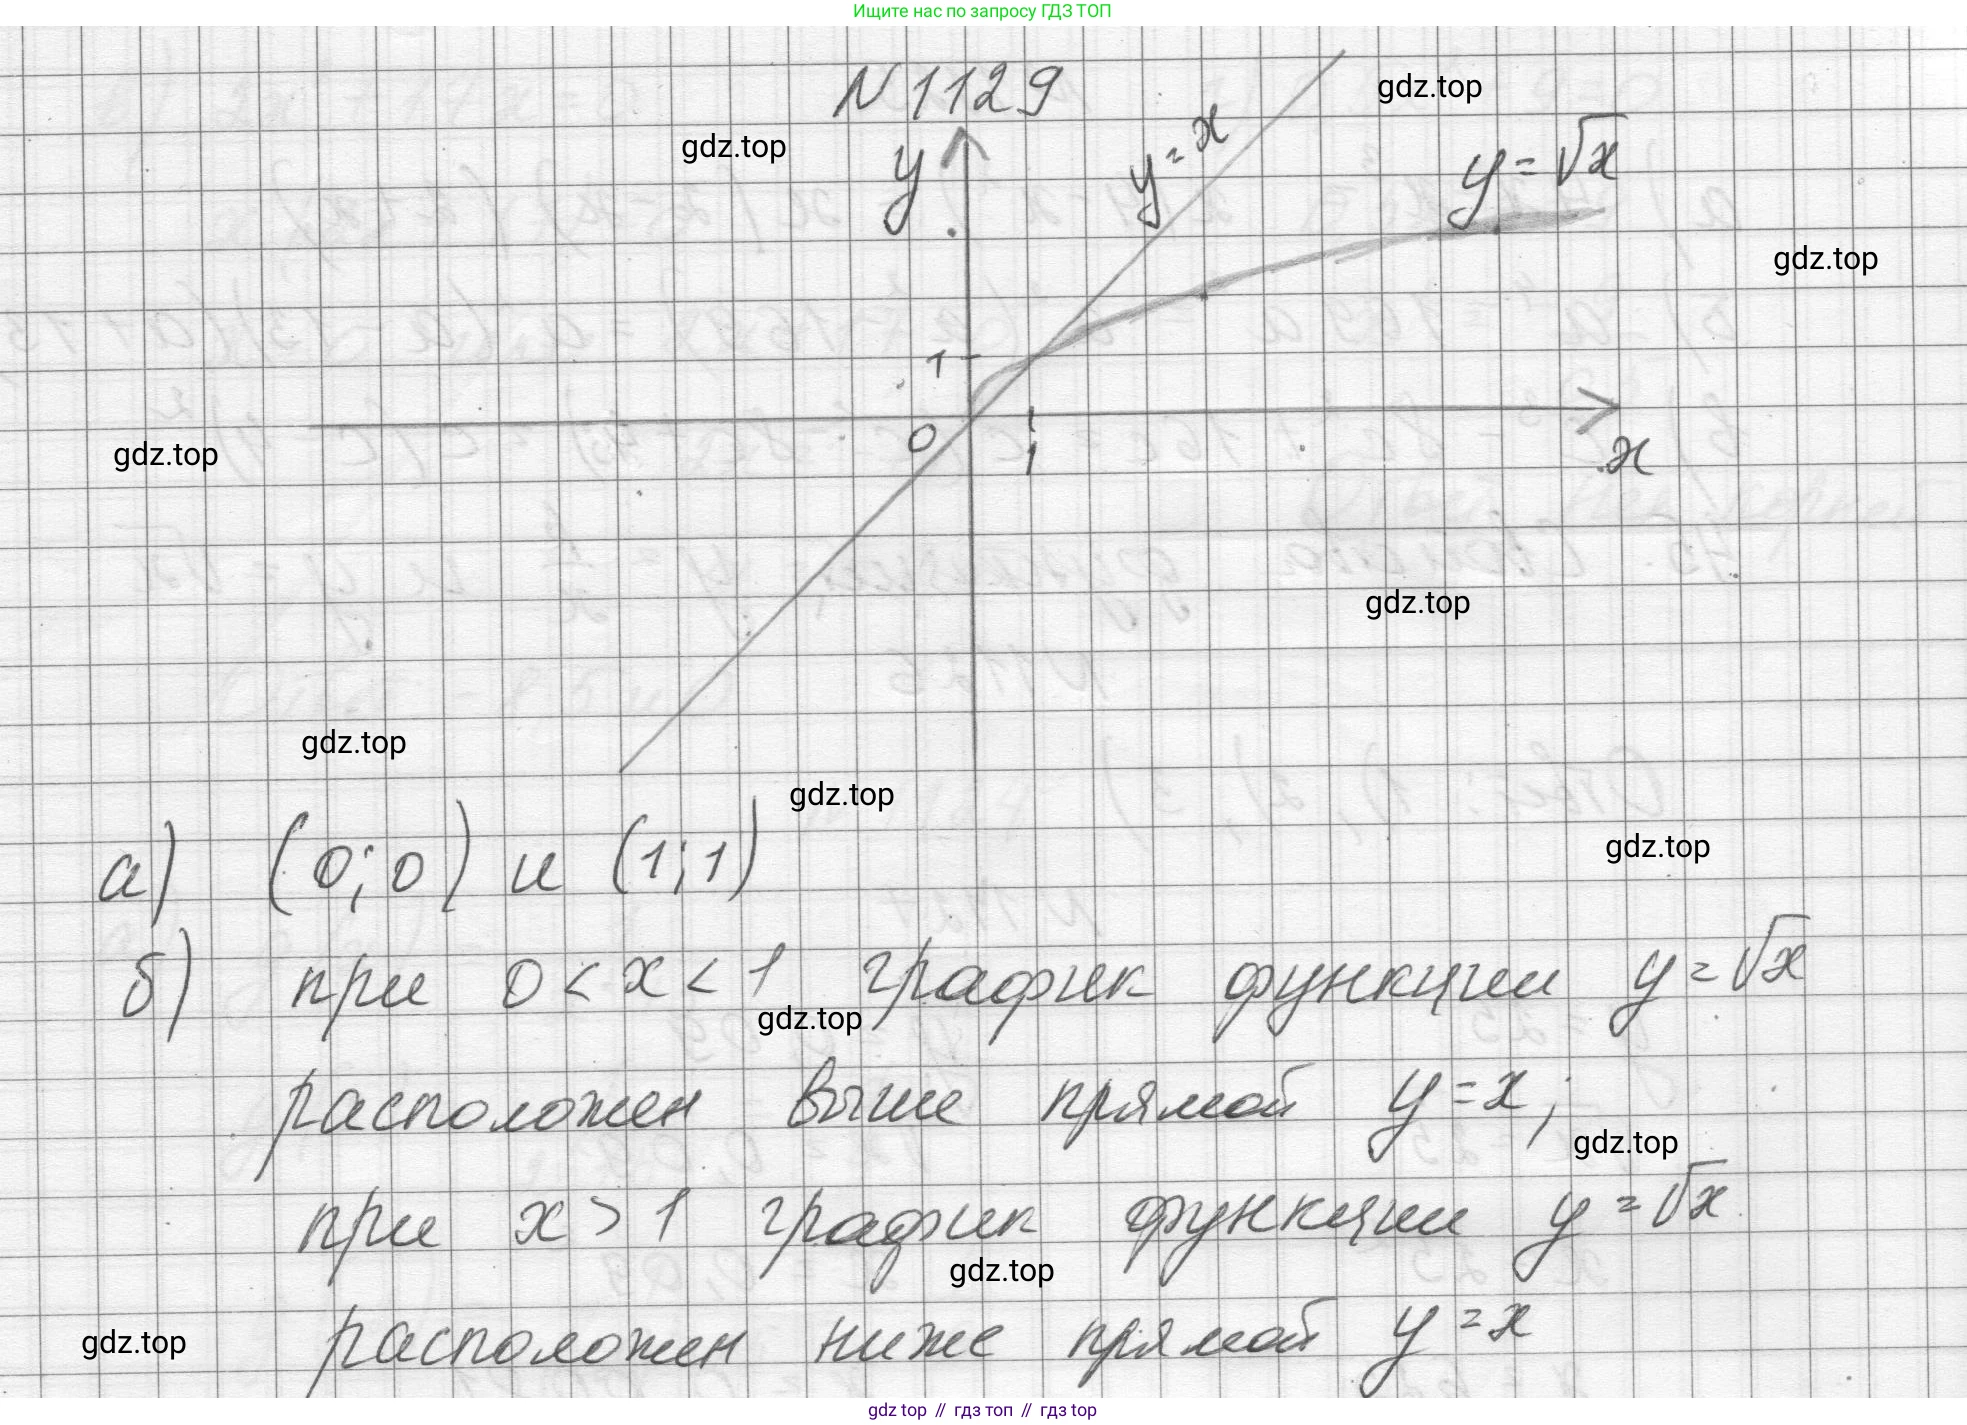 Ищите нас по запросу ГДЗ ТОП
N 1129
gdz.top
gdz.top
y
y = x
y = √x
gdz.top
1
0
1
x
gdz.top
gdz.top
gdz.top
gdz.top
а) (0; 0) и (1; 1)
gdz.top
б) при 0 < x < 1 график функции y = √x
gdz.top
расположен выше прямой y = x;
gdz.top
при x > 1 график функции y = √x
gdz.top
расположен ниже прямой y = x
gdz.top
gdz top // гдз топ // гдз top